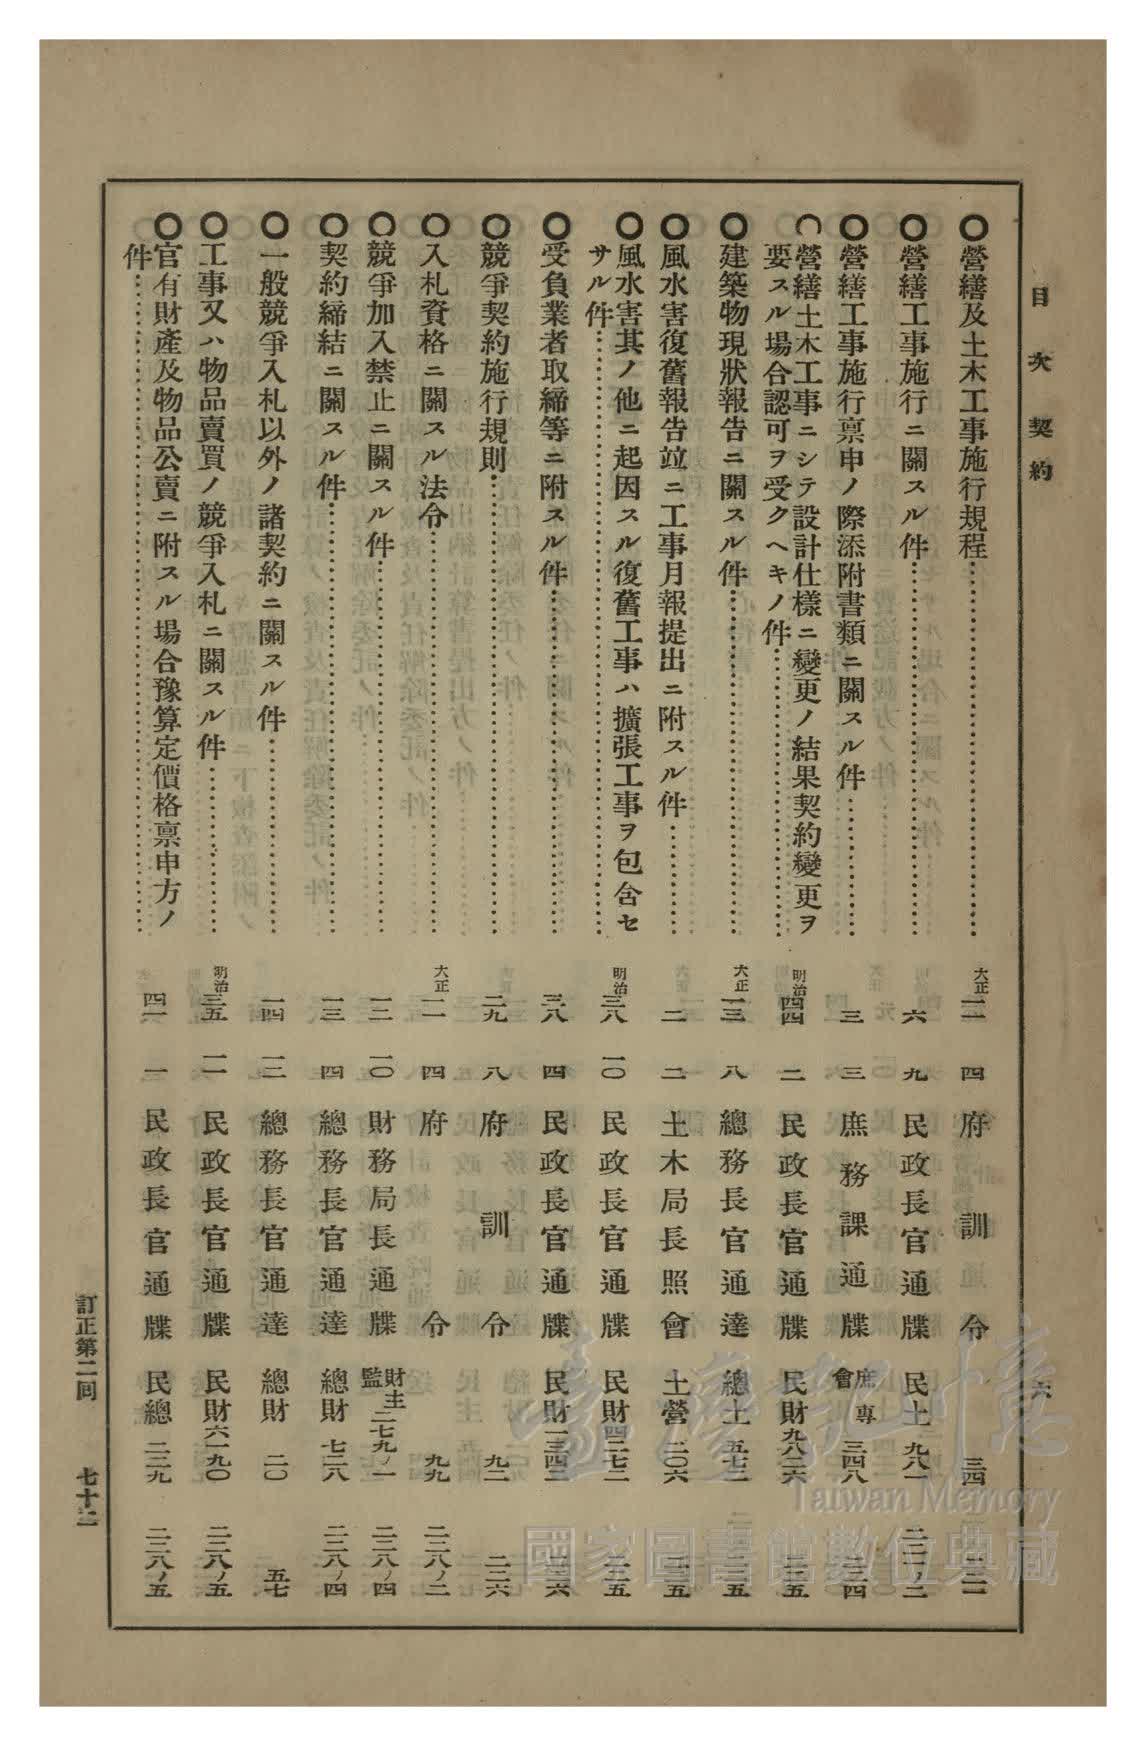 目次 契約 六
〇營繕及土木工事施行規程…… 大正一一 四 府訓令 三四
〇營繕工事施行ニ關スル件…… 六 九 民政長官通牒 民土 九八一
〇營繕工事施行稟申ノ際添附書類ニ關スル件…… 三 三 庶務課通牒 庶專會 三四八
〇營繕土木工事ニシテ設計仕樣ニ變更ノ結果契約變更ヲ
要スル場合認可ヲ受クヘキノ件…… 明治四四 二 民政長官通牒 民財九八三六
〇建築物現狀報告ニ關スル件…… 大正一三 八 總務長官通達 總土 五七三
〇風水害復舊報告竝ニ工事月報提出ニ附スル件…… 二 二 土木局長照會 土營 二〇六
〇風水害其ノ他ニ起因スル復舊工事ハ擴張工事ヲ包含セ
サル件…… 明治三八 一〇 民政長官通牒 民財四二七二 二二五
〇受負業者取締等ニ附スル件…… 三八 四 民政長官通牒 民財一三四三 二二六
〇競爭契約施行規則…… 二九 八 府訓令 九二 二二六
〇入札資格ニ關スル法令…… 大正一一 四 府令 九九 二二八ノ二
〇競爭加入禁止ニ關スル件…… 一二 一〇 財務局長通牒 財主監 二七九ノ一 二二八ノ四
〇契約締結ニ關スル件…… 一三 四 總務長官通達 總財 七二八 二二八ノ四
〇一般競爭入札以外ノ諸契約ニ關スル件…… 一四 一二 總務長官通達 總財 二〇 五七
〇工事又ハ物品賣買ノ競爭入札ニ關スル件…… 明治三五 一一 民政長官通牒 民財六一九〇 二二八ノ五
〇官有財產及物品公賣ニ附スル場合豫算定價格稟申方ノ
件…… 四一 一 民政長官通牒 民總 二二九 二二八ノ五
訂正第二回 七十二
臺灣記憶
Taiwan Memory
國家圖書館數位典藏